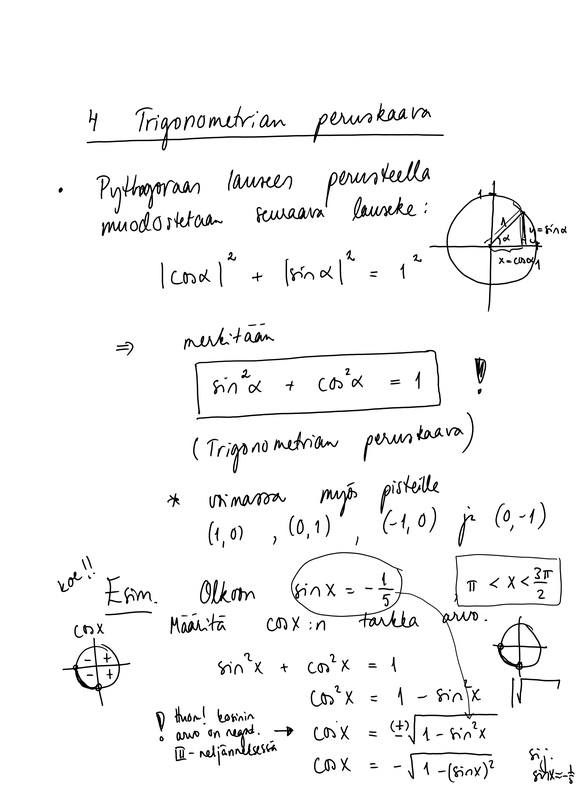 4 Trigonometrian peruskaava
• Pythagoraan lauseen perusteella
muodostetaan seuraava lauseke:
1
1
α
y=sinα
x=cosα
1
|cosα|² + |sinα|² = 1²
⇒ merkitään
sin²α + cos²α = 1 !
(Trigonometrian peruskaava)
* voimassa myös pisteille
(1,0) , (0,1) , (-1,0) ja (0,-1)
koe!!
Esim. Olkoon sinx = -1/5 , π < x < 3π/2
Määritä cosx:n tarkka arvo.
cosx
- +
- +
sin²x + cos²x = 1
cos²x = 1 - sin²x
! Huom! kosinin
arvo on negat.
III-neljänneksessä
→ cosx = (±)√(1 - sin²x)
cosx = -√(1-(sinx)²)
sij.
sinx=-1/5